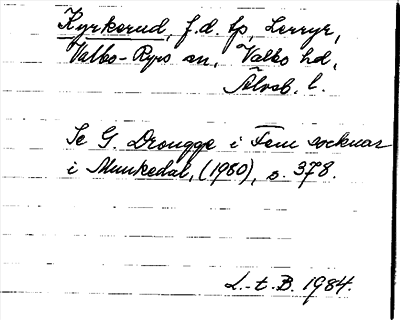 Kyrkerud, f.d. tp, Lerryr,
Valbo-Ryrs sn, Valbo hd,
Älvsb. l.
Se G. Drougge i Fem socknar
i Munkedal, (1950), s. 378.
L.-t. B. 1984.